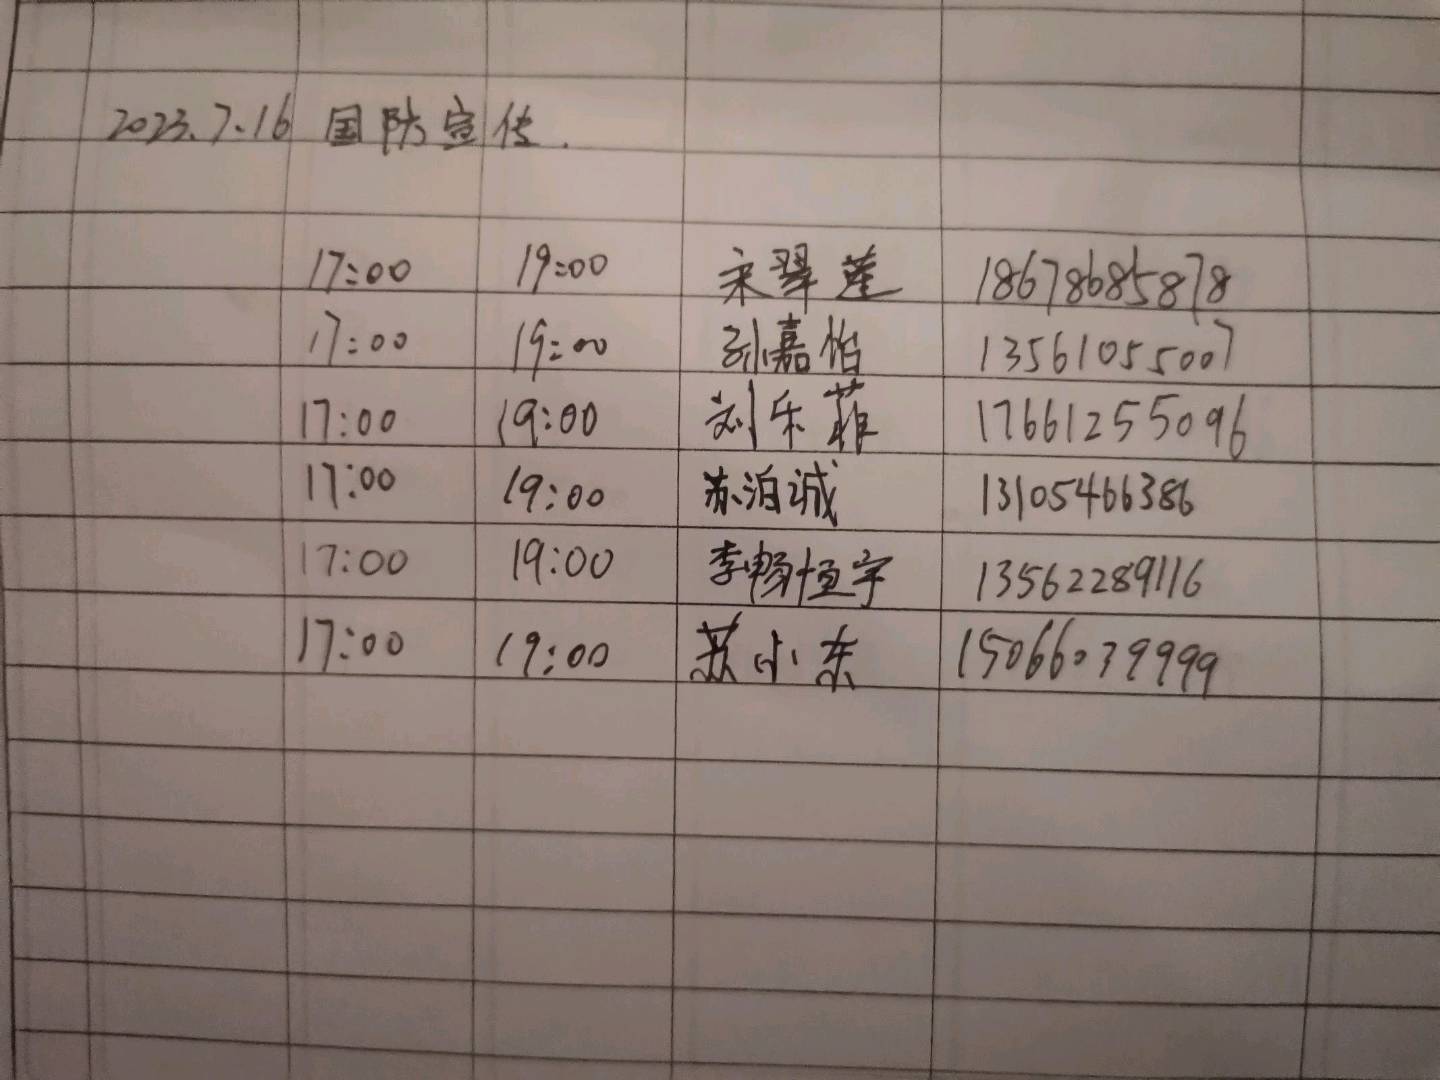 2023.7.16 国防宣传.
17:00 19:00 宋翠莲 18678685878
17:00 19:00 孙嘉怡 13561055007
17:00 19:00 刘乐菲 17661255096
17:00 19:00 苏泊诚 13105466386
17:00 19:00 李畅恒宇 13562289116
17:00 19:00 苏小东 15066039999